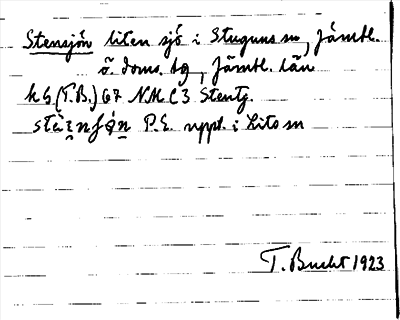 Stensjön liten sjö i Stuguns sn, Jämtl.
ö. doms. tg, Jämtl. län
h 5 (T.B.) 67 NM C3 Stentj.
P.E. uppt. i Lits sn
T. Bucht 1923